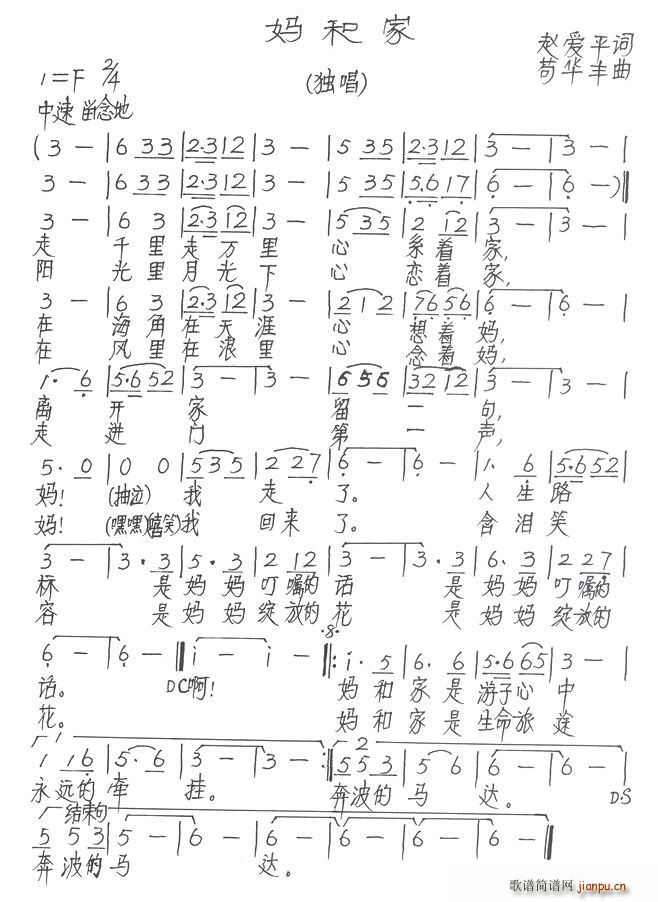 妈和家
赵爱平词
(独唱)
苟华丰曲
1=F 2/4
中速 留念地
(3 - | 6 33 | 2·3 12 | 3 - | 5 35 | 2·3 12 | 3 - | 3 - |
3 - | 6 33 | 2·3 12 | 3 - | 5 35 | 5·6 17 | 6 - | 6 -)‖
3 - | 6 3 | 2·3 12 | 3 - | 5 3 5 | 2 12 | 3 - | 3 - |
走 千里走万里 心 系着家,
阳 光里月光下 心 恋着家,
3 - | 6 3 | 2·3 12 | 3 - | 2 1 2 | 76 56 | 6 - | 6 - |
在 海角在天涯 心 想着妈,
在 风里在浪里 心 念着妈,
1· 6 | 5·6 52 | 3 - | 3 - | 6 5 6 | 32 12 | 3 - | 3 - |
离开家 留一句,
走进门 第一声,
5· 0 | 0 0 | 5 3 5 | 2 2 7 | 6 - | 6 - | 1· 6 | 5·6 52 |
妈! (抽泣) 我走了。 人生路
妈! (嘿嘿)(嘻笑)我回来了。 含泪笑
3 - | 3· 3 | 5· 3 | 2 12 | 3 - | 3· 3 | 6· 3 | 2 2 7 |
标 是妈妈叮嘱的话 是妈妈叮嘱的
容 是妈妈绽放的花 是妈妈绽放的
6 - | 6 - ‖ i - | i - ‖: i· 5 | 6· 6 | 5·6 65 | 3 - |
话。 DC啊! 妈和家是游子心中
花。 妈和家是生命旅途
1 2
1 16 | 5· 6 | 3 - | 3 - :‖ 5 5 3 | 5 6 | 6 - | 6 - |
永远的牵挂。 奔波的马达。 D·S
结束句
5 5 3 | 5 - | 6 - | 6 - | 6 - | 6 - | 6 - ‖
奔波的马达。
歌谱简谱网 jianpu.cn